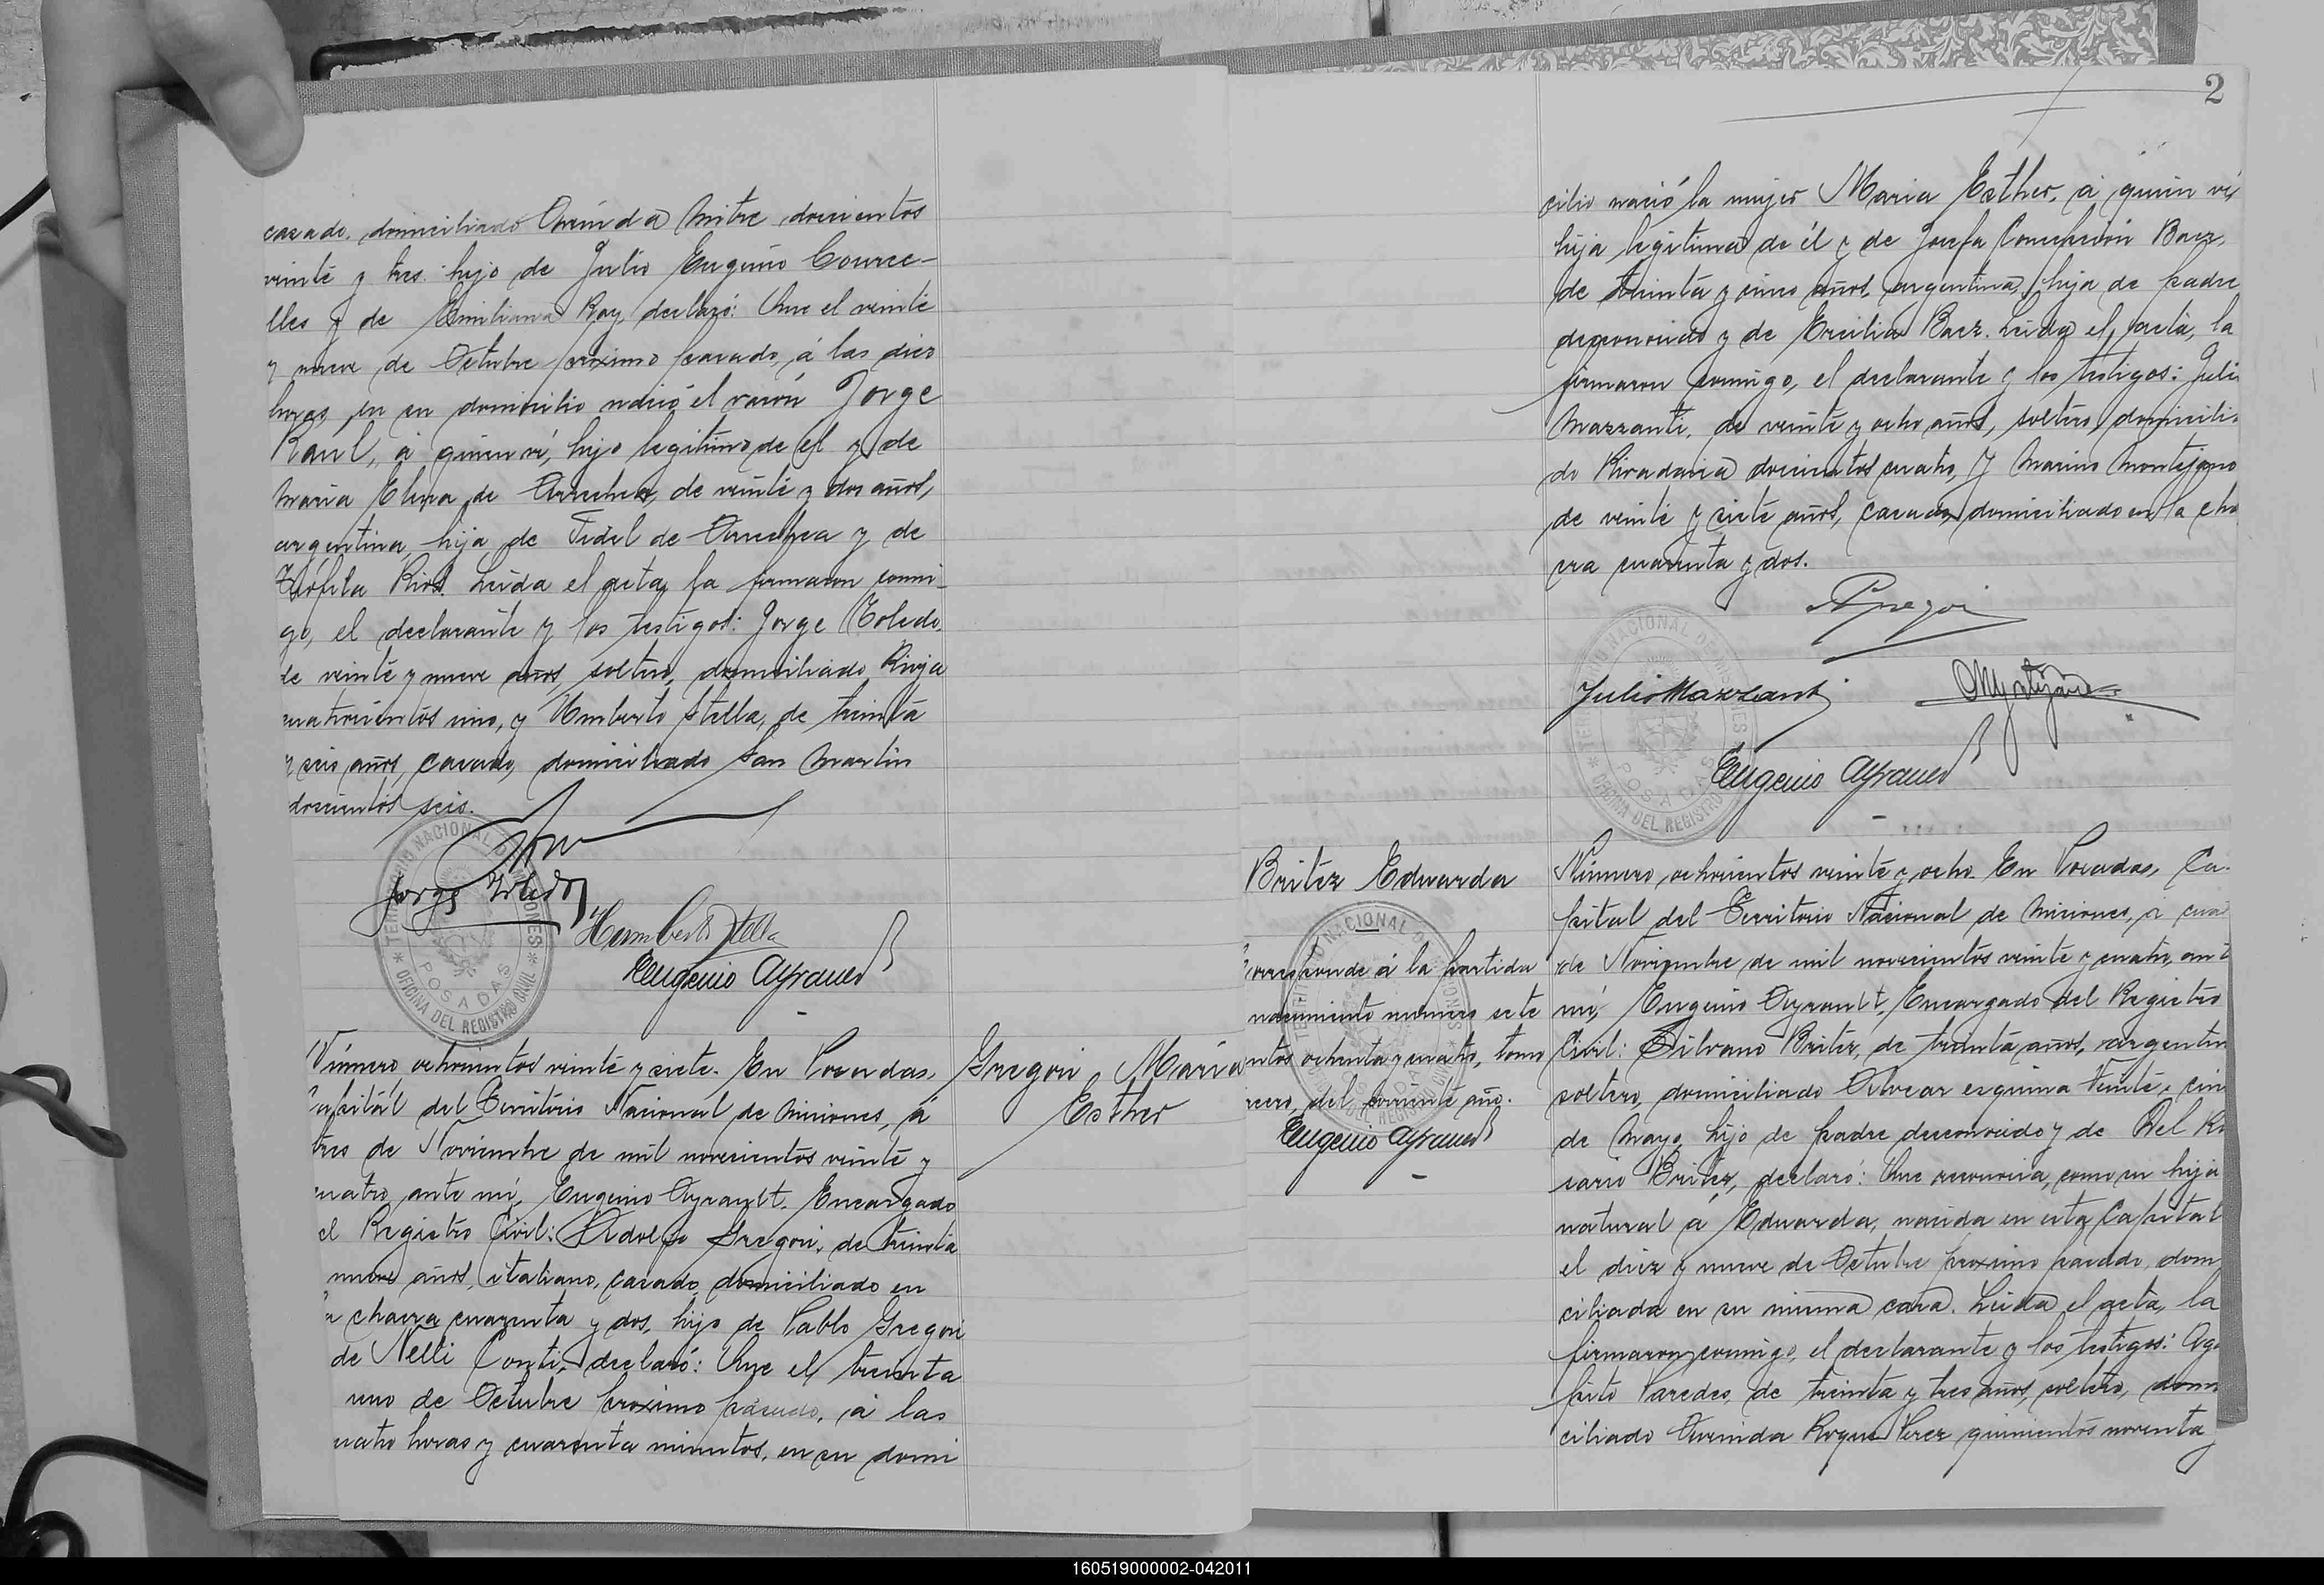 casado, domiciliado Avenida Mitre doscientos
veinte y tres, hijo de Julio EugenioOurce-
lles y de Emiliana Ray, declaró: Que el veinte
y nueve de Octubre próximo pasado, á las diez
horas, en su domicilio nació el varón Jorge
Raúl, á quien ví, hijo legítimo de él y de
María Elena de Arrechea, de veinte y dos años,
argentina, hija de Fidel de Arrechea y de
Teófila Rios. Leida el acta, la firmaron conmi-
go, el declarante y los testigos: Jorge Toledo,
de veinte y nueve años, soltero, domiciliado Rioja
cuatrocientos uno, y Umberto Stella, de treinta
y seis años, casado, domiciliado San Martin
doscientos seis.
Jorge Toledo
Humberto Stella
Eugenio Ayrault
TERRITORIO NACIONAL DE MISIONES
POSADAS
OFICINA DEL REGISTRO CIVIL
Número ochocientos veinte y siete. En Posadas,
Capital del Territorio Nacional de Misiones, á
tres de Noviembre de mil novecientos veinte y
cuatro, ante mí, Eugenio Ayrault, Encargado
el Registro Civil: Adolfo Gregori, de treinta
nueve años, italiano, casado, domiciliado en
a chacra cuarenta y dos, hijo de Pablo Gregori
de Nelli Conti, declaró: Que el treinta
uno de Octubre proximo pasado, á las
cuatro horas y cuarenta minutos, en su domi
Gregori María
Esther
2
cilio nació la mujer Maria Esther, á quien ví,
hija legítima de él y de Josefa Concepción Baez,
de treinta y cinco años, argentina, hija de padre
desconocido y de Ercilia Baez. Leida el acta, la
firmaron conmigo, el declarante y los testigos: Juli
Mazzanti, de veinte y ocho años, soltero, domicili
do Rivadavia doscientos cuatro, y Marino Montejano
de veinte y siete años, casado, domiciliado en la cha
cra cuarenta y dos.
AGregori
Julio Mazzanti
Eugenio Ayrault
TERRITORIO NACIONAL DE MISIONES
POSADAS
OFICINA DEL REGISTRO CIVIL
Britez Eduarda
Corresponde á la partida
nacimiento número sete
ntos ochenta y cuatro, tomo
rcero, del corriente año.
Eugenio Ayrault
Número ochocientos veinte y ocho. En Posadas, Ca-
pital del Territorio Nacional de Misiones, á cua
de Noviembre de mil novecientos veinte y cuatro, ant
mí, Eugenio Ayrault, Encargado del Registro
Civil: Silvano Britez, de treinta años, argentin
soltero, domiciliado Alvear esquina Veinte y cin
de Mayo, hijo de padre desconocido y de Del Ro
sario Britez, declaró: Que reconocía, como su hija
natural á Eduarda, nacida en esta Capital
el diez y nueve de Octubre proximo pasado, dom
ciliada en su misma casa. Leida el acta, la
firmaron conmigo, el declarante y los testigos: Aga
pito Paredes, de treinta y tres años, soltero, domi
ciliado Avenida Roque Perez quinientos noventa
160519000002-042011